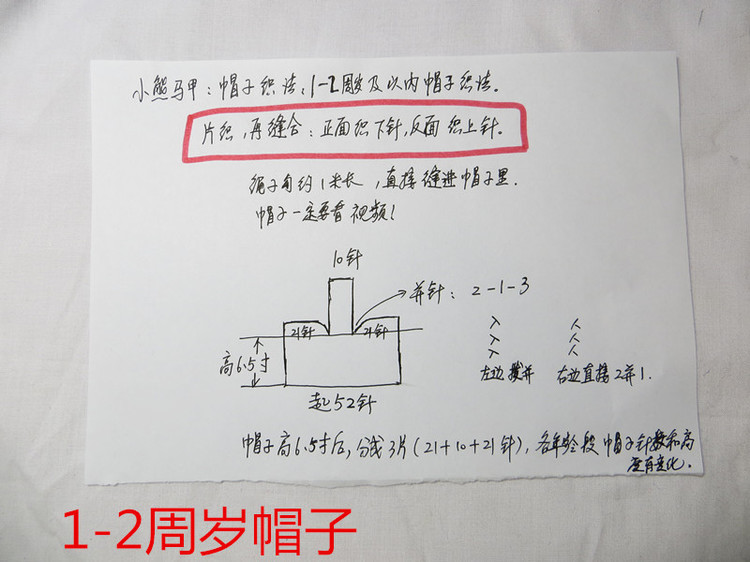 小熊马甲：帽子织法：1-2周岁及以内帽子织法。
片织，再缝合：正面织下针，反面织上针。
绳子勾约1米长，直接缝进帽子里．
帽子一定要看视频！
10针
并针：2-1-3
21针 21针
入 人
入 人
入 人
高6.5寸
左边拨并 右边直接2并1．
起52针
帽子高6.5寸后，分成3片（21+10+21针），各年龄段帽子针数和高
度有变化．
1-2周岁帽子